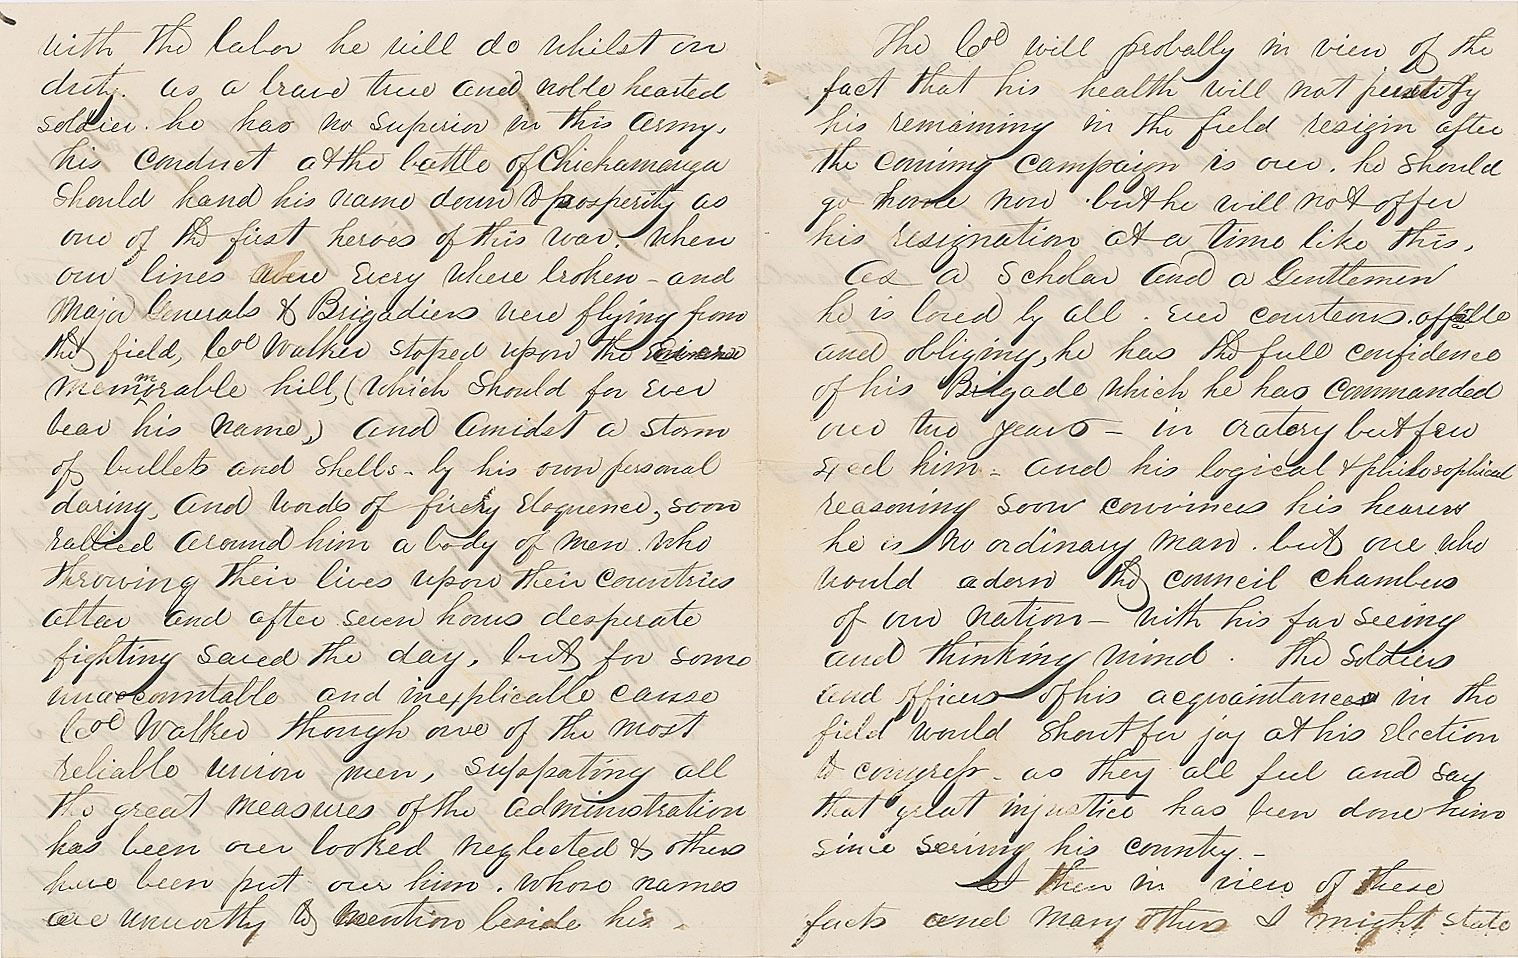 with the labor he will do whilst on
duty. as a brave true and noble hearted
soldier. he has no superior in this army,
his conduct at the battle of Chickamauga
should hand his name down to prosperity as
one of the first heroes of this war. When
our lines were every where broken - and
Major Generals & Brigadiers were flying from
the field, Col Walker stoped upon the
memmorable hill, (which should for ever
bear his name,) and amidst a storm
of bullets and shells - by his own personal
daring, and words of firery eloquence, soon
rallied around him a body of men. who
throwing their lives upon their countries
altar and after seven hours desperate
fighting saved the day, but for some
unaccountable and inexplicable cause
Col Walker though one of the most
reliable union men, suppoting all
the great measures of the administration
has been over looked neglected & others
have been put over him. whose names
are unworthy to mention beside his.
The Col will probally in view of the
fact that his health will not justify
his remaining in the field resign after
the coming campaign is over. he should
go home now. but he will not offer
his resignation at a time like this,
as a scholar and a Gentlemen
he is loved by all. ever courteous. affable
and obliging, he has the full confidence
of his Brigade which he has commanded
over two years - in oratory but few
exel him - and his logical & philosophical
reasoning soon convinces his hearers
he is no ordinary man. but one who
would adorn the council chambers
of our nation - with his far seeing
and thinking mind. The soldiers
and officers of his acquaintances in the
field would shout for joy at his election
to congress - as they all feel and say
that great injustice has been done him
since serving his country. -
I then in view of these
facts and many others I might state